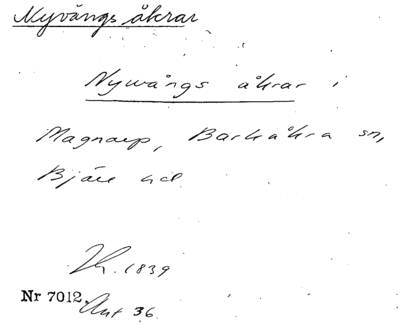 Nyvångs åkrar
Nywångs åkrar i
Magnarp, Barkåkra sn,
Bjäre hd
1839
Nr 7012. Akt 36.